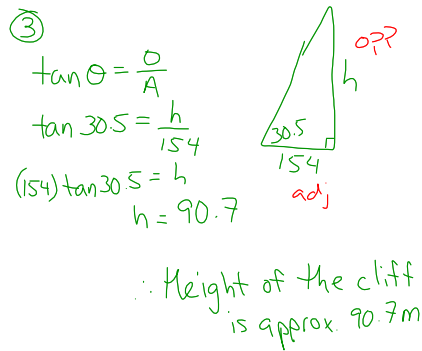 ③
tan θ = O/A
tan 30.5 = h/154
(154) tan 30.5 = h
h = 90.7
opp
h
30.5
154
adj
∴ Height of the cliff
is approx. 90.7m